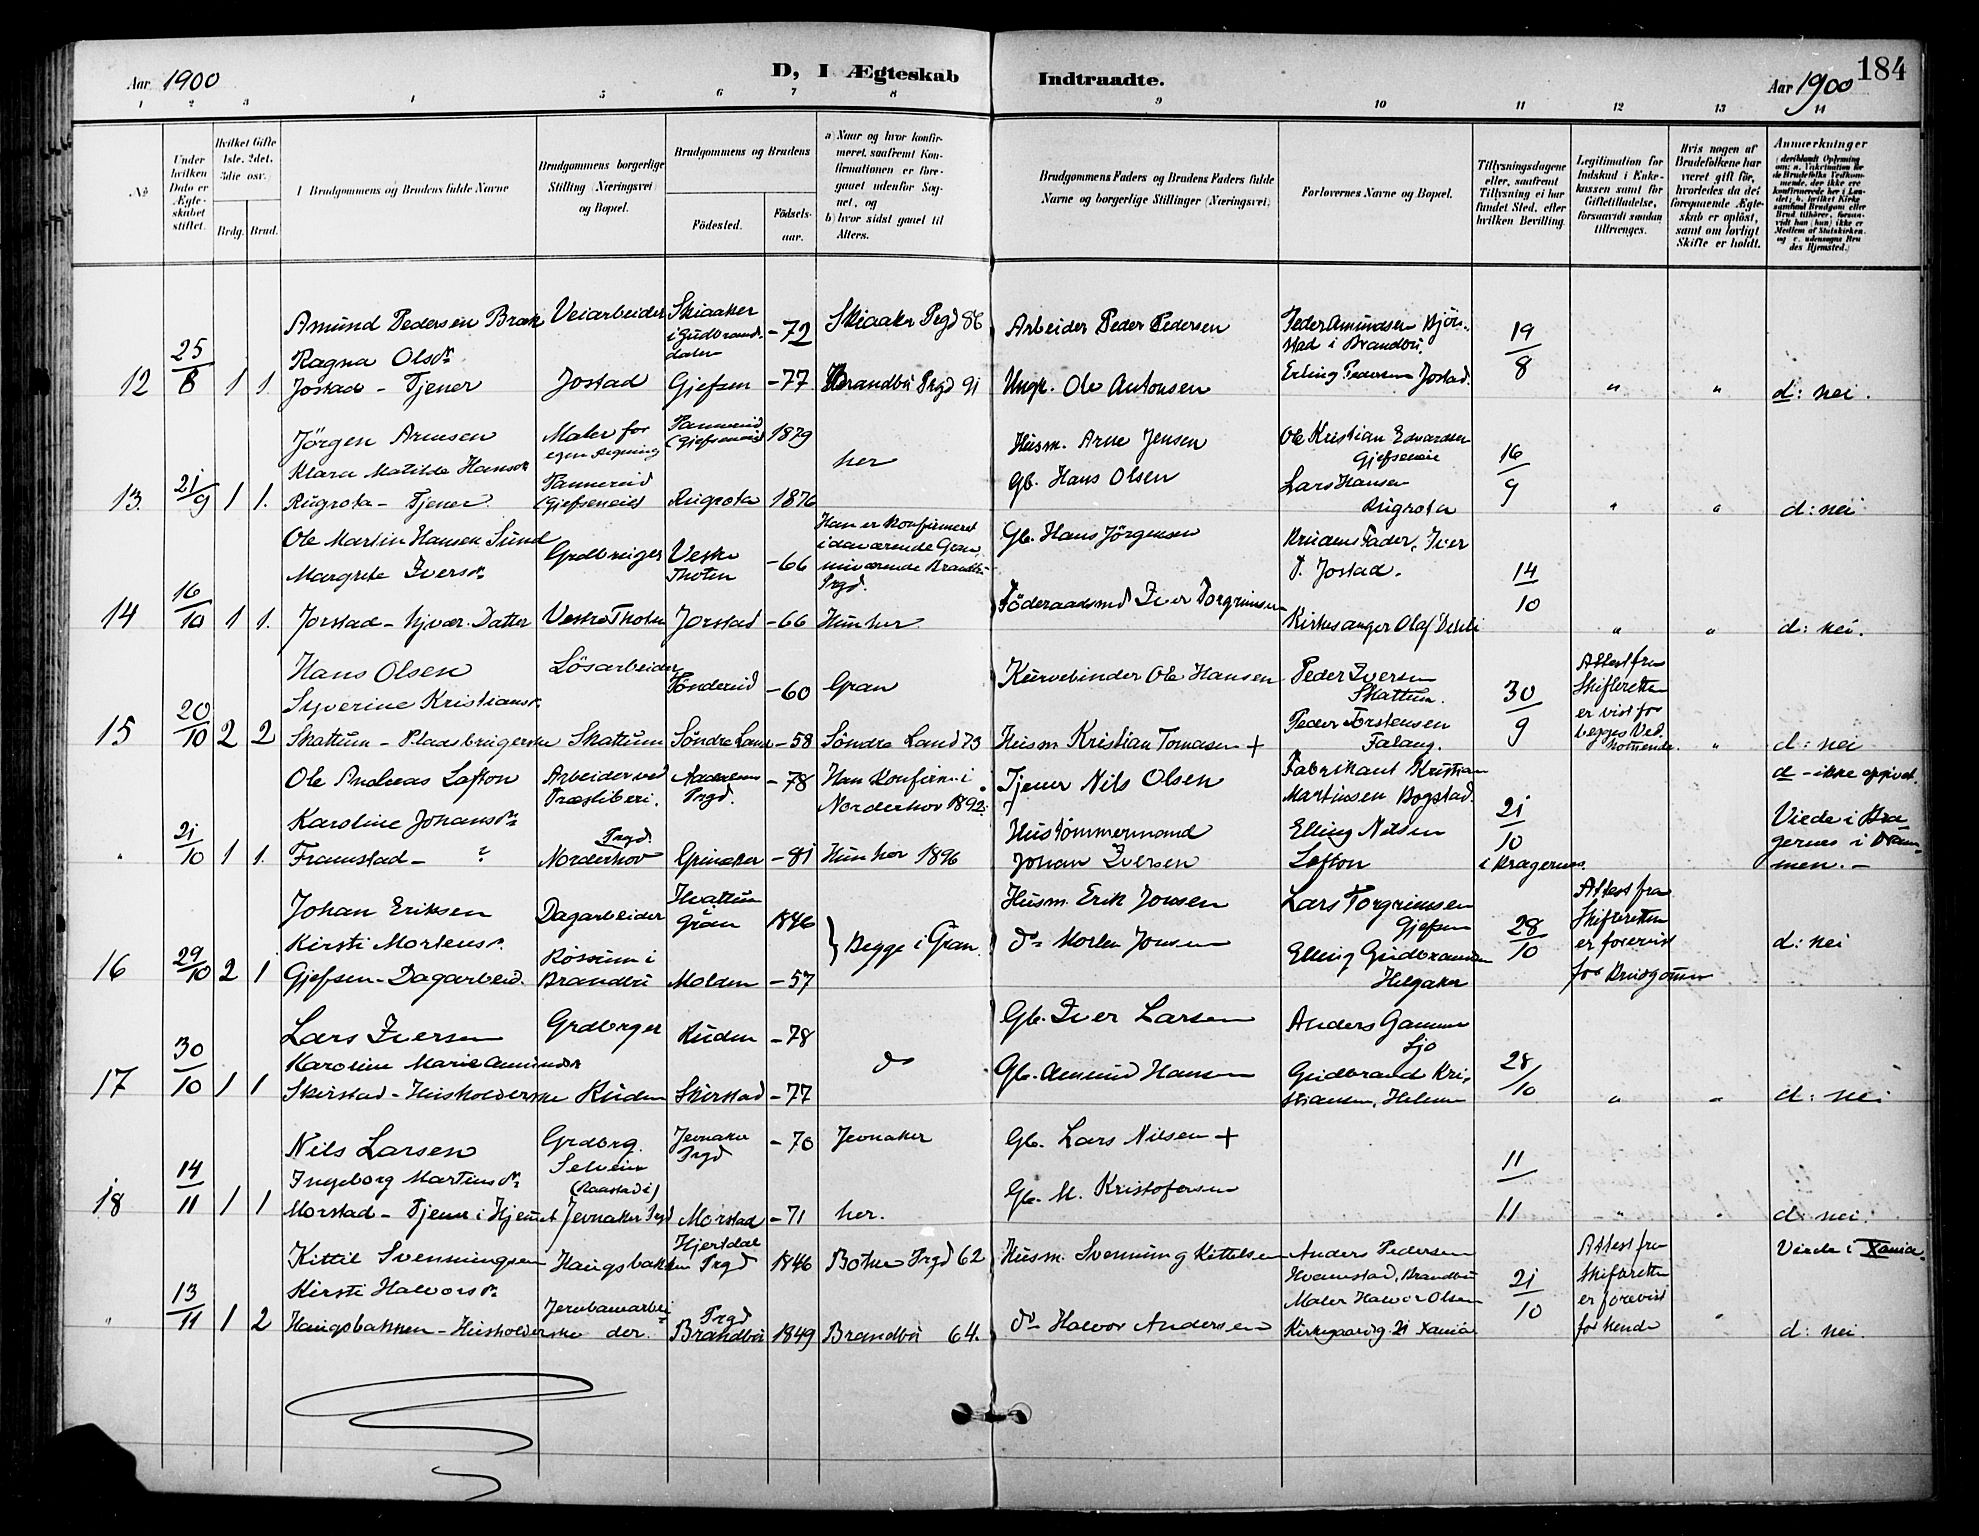 Aar 1900
D, I Ægteskab
Indtraadte.
Aar 1900
184
1 2 3 4 5 6 7 8 9 10 11 12 13 14
No
Under hvilken Dato er Ægteskabet stiftet.
Hvilket Gifte 1ste, 2det, 3die osv.
Brdg. Brud.
Brudgommens og Brudens fulde Navne
Brudgommens borgerlige Stilling (Næringsvei) og Bopæl.
Brudgommens og Brudens
Fødested.
Fødselsaar.
a) Naar og hvor konfirmeret, saafremt Konfirmationen er foregaaet udenfor Sognet, og
b) hvor sidst gaaet til Alters.
Brudgommens Faders og Brudens Faders fulde Navne og borgerlige Stillinger (Næringsvei)
Forlovernes Navne og Bopæl.
Tillysningsdagene eller, saafremt Tillysning ei har fundet Sted, efter hvilken Bevilling.
Legitimation for Indskud i Enkekassen samt for Giftetilladelse, forsaavidt saadan tiltrænges.
Hvis nogen af Brudefolkene har været gift før, hvorledes da det foregaaende Ægteskab er opløst, samt om lovligt Skifte er holdt.
Anmærkninger
12 25/8 1 1.
Amund Pedersen Brak
Ragna Olsdr
Jostad - Tjener
Veiarbeider
Jostad
Skiaaker i Gudbrandsdalen -72
Gjefsen -77
Skiaaker Prgd 86
Brandbu Prgd 91
Arbeider Peder Pedersen
Ungk. Ole Antonsen
Peder Amundsen Björstad i Brandbu.
Erling Pedersen Jostad.
19/8
" "
d: nei.
13. 21/9 1 1.
Jörgen Arnesen
Klara Matilde Hansdr
Rugrota - Tjener.
Maler for egen Regning
Tannereid (Gjefseneiet
1879
Rugrota 1876
her
Husm. Arne Jensen
Gb. Hans Olsen
Ole Kristian Edvardsen Gjefseneie
Lars Hansen
Rugrota
16/9
" "
d: nei
14 16/10 1 1.
Ole Martin Hansen Sund
Margrete Iversdr
Jorstad - hjvær. Datter
Grdbruger
Vestre Thoten
Vestre Thoten -66
Jorstad -66
Han er konfirmeret i daværende Gran, nuværende Brandbu Prgd.
Hun her
Gb. Hans Jörgensen
Föderaadsmd Iver Torgrimsen
Brudens Fader, Iver T. Jostad.
Kirkesanger Olaf Dehli
14/10
" "
d: nei.
15 20/10 2 2
Hans Olsen
Syverine Kristiansdr
Skattum - Pladsbrugerske
Lösarbeider
Skattum
Töndereid -60
Söndre Land -58
Gran
Söndre Land 73
Kurvebinder Ole Hansen
Husm Kristian Tomasen +
Peder Iversen Skattum.
Peder Torstensen Falang.
30/9
Attest fra Skifteretten er vist for begges Vedkommende.
"
d: nei
" 21/10 1 1.
Ole Andreas Lofton
Karoline Johansdr
Framstad - ?
Arbeider ved Træsliberi.
Norderhov Prgd.
Aadalens Prgd. -78
Grinaker -81
Han Konfirm i Norderhov 1892.
Hun her 1896
Tjener Nils Olsen
Hustømmermand
Johan Iversen
Fabrikant Kristian Martinsen Bogstad.
Elling Nilsen
Lofton
21/10
i Bragernes.
d - ikke opgivet.
Viede i Bragernes i Drammen. -
16 29/10 2 1
Johan Eriksen
Kirsti Mortensdr.
Gjefsen - Dagarbeid.
Dagarbeider
Rossum i Brandbu
Hvattum Gran 1846
Molden -57
Begge i Gran
Husm. Erik Jonsen
do Morten Jonsen
Lars Torgrimsen Gjefsen
Elling Gudbrandsen
Helgaker
28/10
Attest fra Skifteretten er forevist for Brudgommen
d: nei
17 30/10 1 1
Lars Iversen
Karoline Marie Amundsdr
Skirstad - Husholderske
Grdbrger
Ruden
Ruden -78
Skirstad -77
do
Gb. Iver Larsen
Gb. Amund Hansen
Anders Gammesjo
Gudbrand Kristiansen, Helmen
28/10
" "
d: nei
18 14/11 1 1
Nils Larsen
Ingeborg Martinsdr.
Morstad - Tjener i Hjemet
Grdbrg.
Selveier
(Raastad i)
Jevnaker Prgd
Jevnaker Prgd -70
Morstad -71
Jevnaker
her.
Gb. Lars Nilsen +
Gb. M. Kristofersen
11/11
" "
d: nei.
" 13/11 1 2
Kittil Svenningsen
Kirsti Halvorsdr.
Haugsbakken - Husholderske
Haugsbakken
Jernbanearbeider.
Hjertdal Prgd 1846
Prgd Brandbu 1849
Botne Prgd 62
Brandbu 64.
Husm. Svennung Kittelsen
do Halvor Andersen
Anders Pedersen
Hvamstad, Brandbu
Maler Halvor Olsen
Kirkegaardg. 21 Xania
21/10
Attest fra Skifteretten er forevist for hende
"
Viede i Xania.
d: nei.